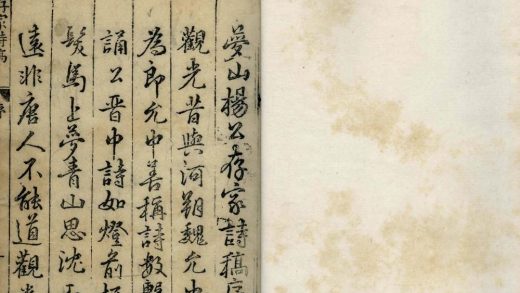 夢山楊公存家詩稿序
觀光昔與河朔魏允中
為郎允中善稱詩數
誦公晋中詩如燈前
髮馬上夢青山思沈
遠非唐人不能道觀
家詩稿
序